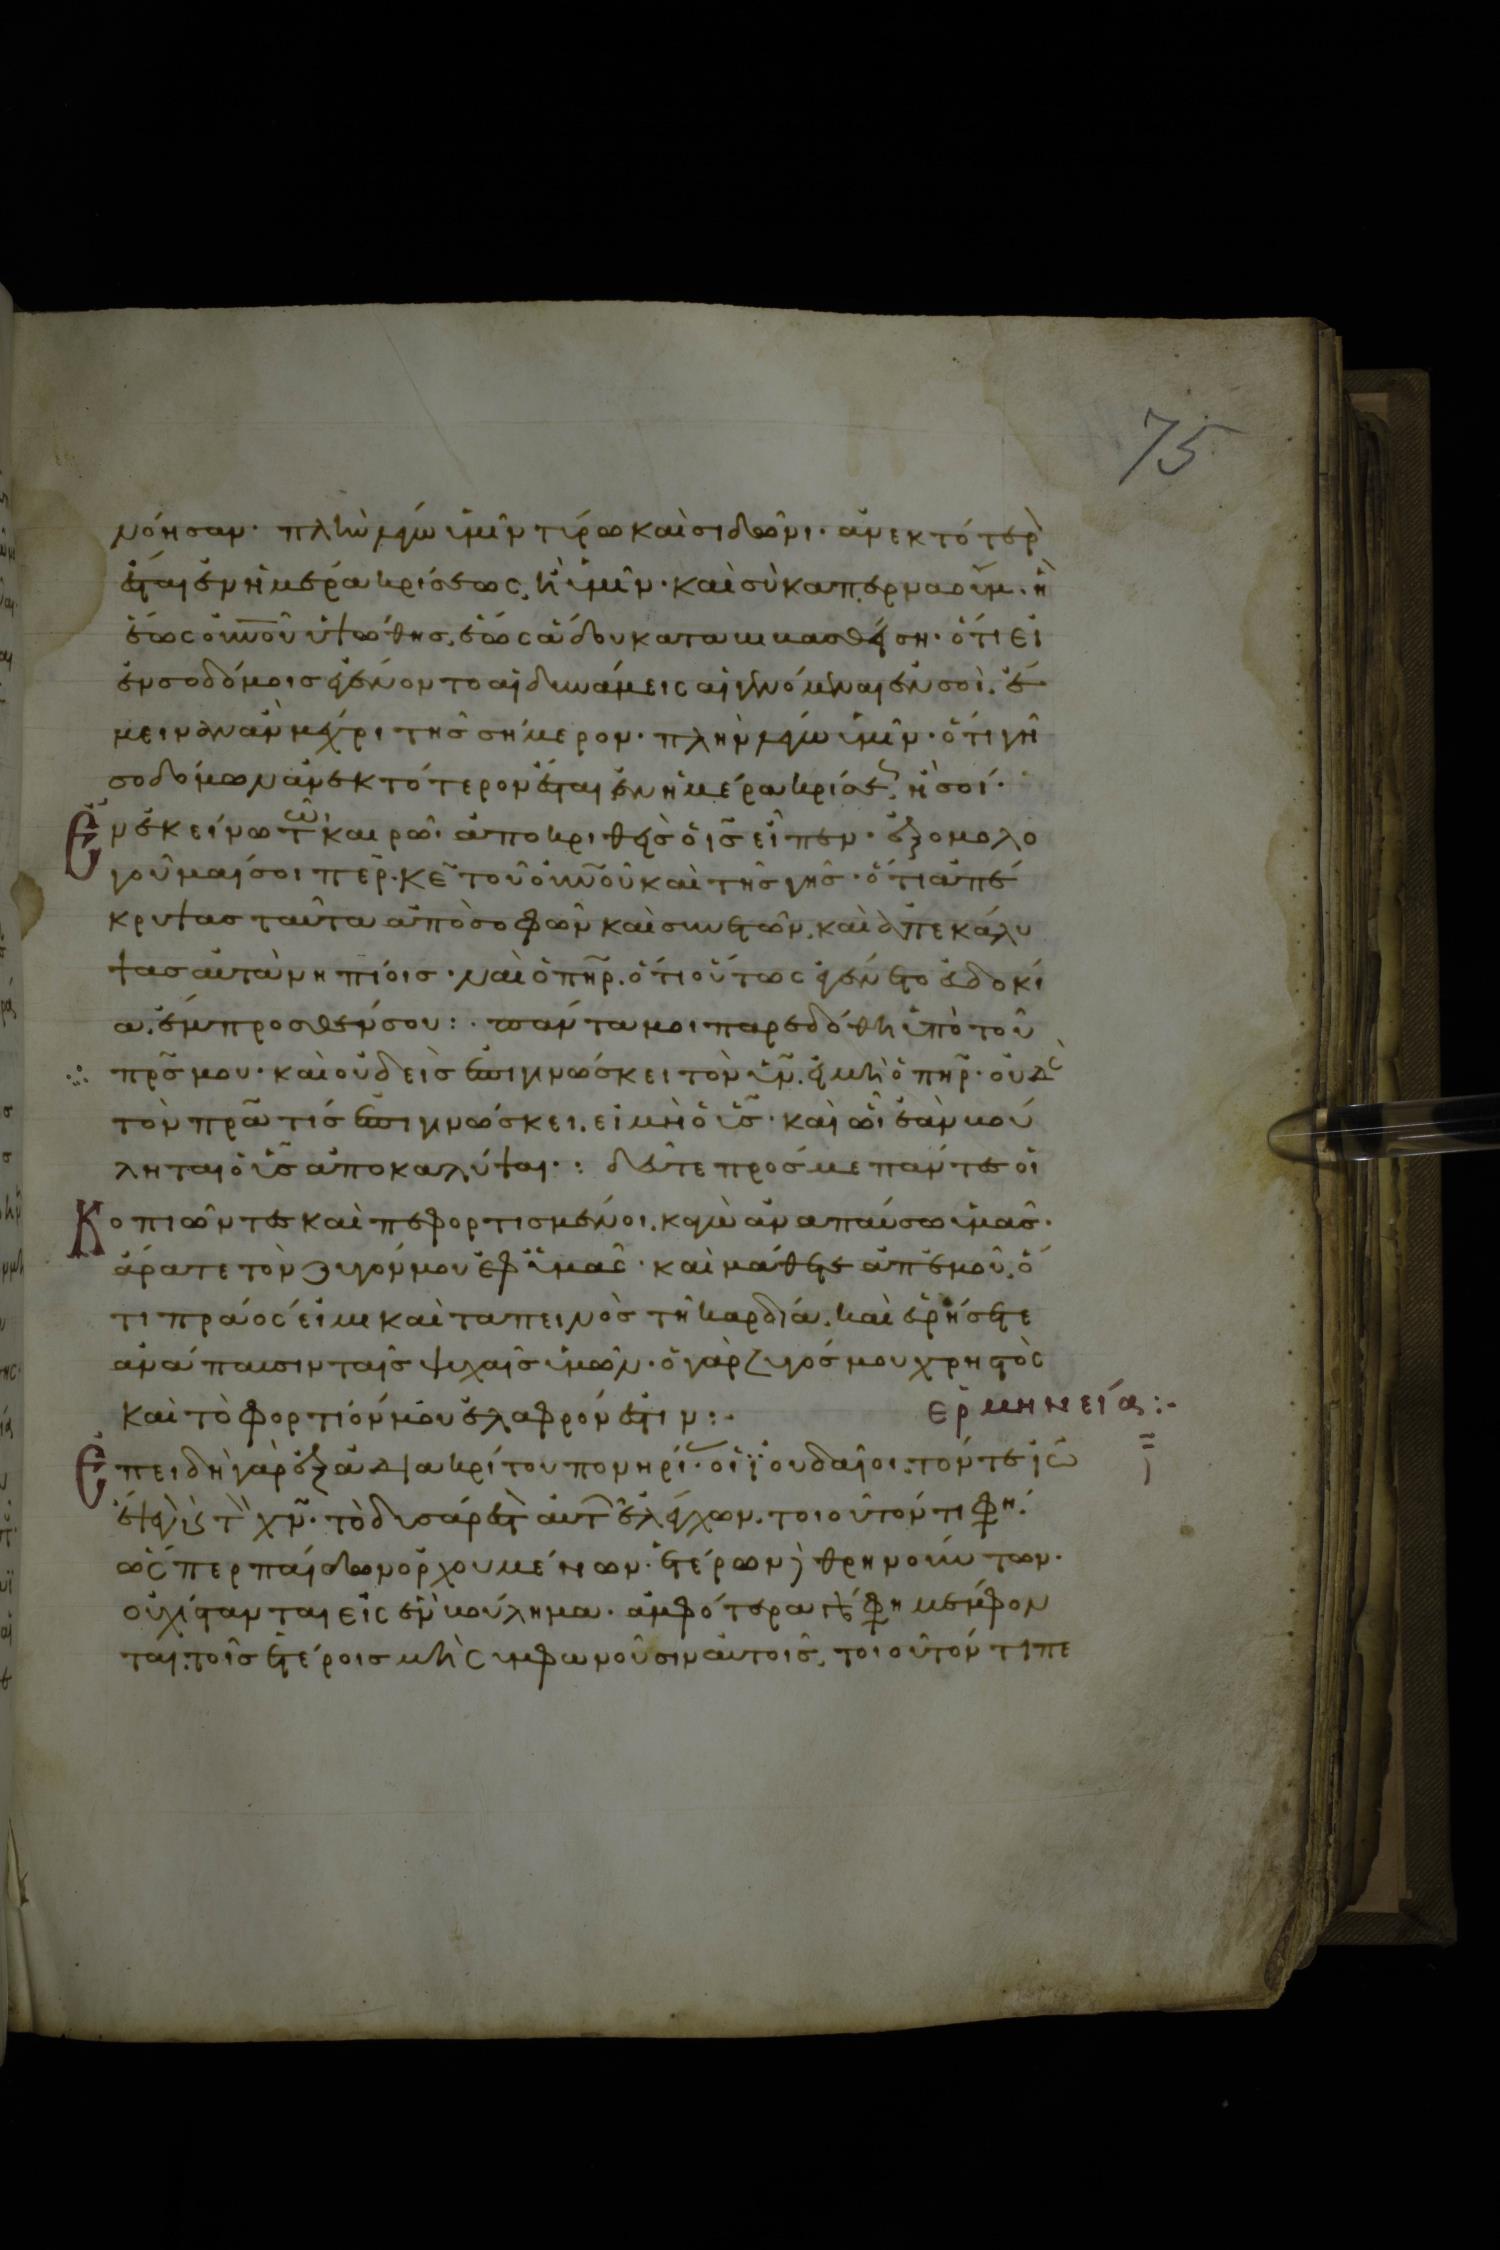 75
νόησαν· πλὴν λέγω ὑμῖν τύρω καὶ σιδῶνι· ἀνεκτότερ
ἔσται ἐν ἡμέρα κρίσεως, ἢ ὑμῖν· καὶ σὺ καπερναούμ· ἡ
ἕως οὐνοῦ ὑψωθης, ἕως ἅδου καταβιβασθήση· ὅτι εἰ
ἐν σοδόμοις ἐγένοντο αἱ δυνάμεις αἱ γενόμεναι ἐν σοὶ, ἔ
μειναν ἂν μέχρι τῆς σήμερον· πλὴν λέγω ὑμῖν· ὅτι γῆ
σοδόμων ἀνεκτότερον ἔσται ἐν ἡμέρα κρίσε, ἢ σοί·
Ἐν ἐκείνω τῶ καιρῶ· ἀποκριθεὶς ὁ ις εἶπεν· ἐξομολο
γοῦμαί σοι περ· κε τοῦ οὐνοῦ καὶ τῆς γῆς· ὅτι ἀπέ
κρυψας ταῦτα ἀπὸ σοφῶν καὶ συνετῶν, καὶ ἀπεκάλυ
ψας αὐτὰ νηπίοις· ναὶ ὁ πηρ· ὅτι οὕτως ἐγένετο εὐδοκί
α, ἔμπροσθέν σου:· πάντα μοι παρεδόθη ὑπὸ τοῦ
πρς μου· καὶ οὐδεὶς ἐπιγινώσκει τὸν υν, εἰ μὴ ὁ πηρ· οὐδὲ
τὸν πρα τίς ἐπιγινώσκει, εἰ μὴ ὁ υς· καὶ ὧ ἐὰν βού
ληται ὁ υς ἀποκαλύψαι·: δεῦτε πρός με πάντες οἱ
Κοπιῶντες καὶ πεφορτισμένοι, κἀγὼ ἀναπαύσω ὑμᾶς·
ἄρατε τὸν ζυγόν μου ἐφ ὑμᾶς· καὶ μάθετε ἀπ ἐμοῦ, ὅ
τι πράος εἰμι καὶ ταπεινὸς τῆ καρδία, καὶ εὑρήσετε
ἀνάπαυσιν ταῖς ψυχαῖς ὑμῶν· ὁ γὰρ ζυγός μου χρηστὸς
καὶ τὸ φορτίον μου ἐλαφρόν ἐστιν:·
ἑρμηνεία:·
Ἐπειδὴ γὰρ ἐξ ἀδιακρίτου πονηρί· οἱ ἰουδαῖοι, τόν τε ἰω
ἔψεγον κ τ χν· τὸ δυσάρεστ αὐτ ἐλέγχων, τοιοῦτόν τι φη·
ὥσπερ παίδων ὀρχουμένων· ἑτέρων θρηνούντων·
οὐχ ἵστανται εἰς ἓν βούλημα· ἀμφότερα φη μέμφον
ται, τοῖς ἑτέροις μὴ συμφωνοῦσιν αὐτοῖς, τοιοῦτόν τι πε